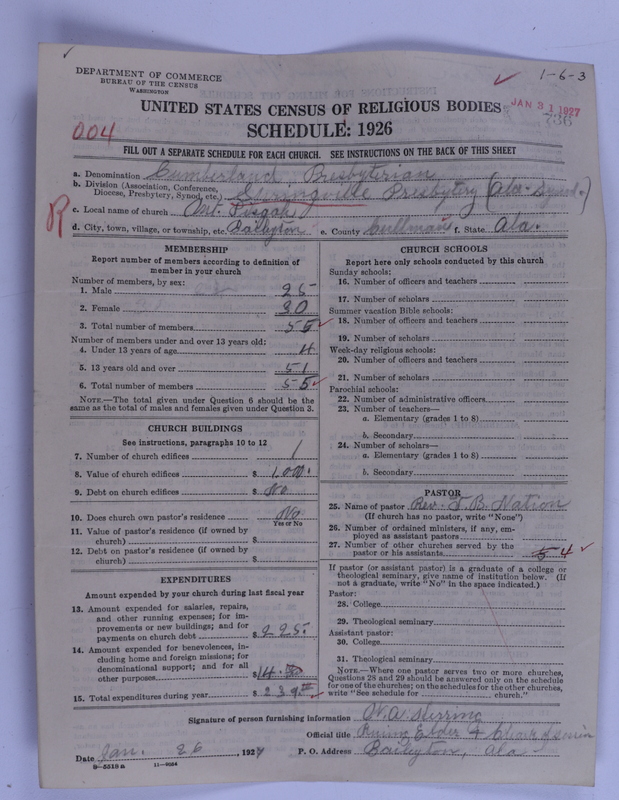 DEPARTMENT OF COMMERCE
BUREAU OF THE CENSUS
WASHINGTON
1-6-3
JAN 31 1927
UNITED STATES CENSUS OF RELIGIOUS BODIES
004
SCHEDULE: 1926
FILL OUT A SEPARATE SCHEDULE FOR EACH CHURCH. SEE INSTRUCTIONS ON THE BACK OF THIS SHEET
a. Denomination Cumberland Presbyterian
b. Division (Association, Conference, Diocese, Presbytery, Synod, etc.) Springville Presbytery (Ala. Synod.)
R
c. Local name of church Mt. Pisgah
d. City, town, village, or township, etc. Baileyton e. County Cullman f. State Ala.
MEMBERSHIP
Report number of members according to definition of
member in your church
Number of members, by sex:
1. Male 25
2. Female 30
3. Total number of members 55
Number of members under and over 13 years old:
4. Under 13 years of age 4
5. 13 years old and over 51
6. Total number of members 55
NOTE.—The total given under Question 6 should be the
same as the total of males and females given under Question 3.
CHURCH BUILDINGS
See instructions, paragraphs 10 to 12
7. Number of church edifices 1
8. Value of church edifices $ 1,000.
9. Debt on church edifices $ No
10. Does church own pastor's residence No
Yes or No
11. Value of pastor's residence (if owned by
church) $
12. Debt on pastor's residence (if owned by
church) $
EXPENDITURES
Amount expended by your church during last fiscal year
13. Amount expended for salaries, repairs,
and other running expenses; for im-
provements or new buildings; and for
payments on church debt $ 225.
14. Amount expended for benevolences, in-
cluding home and foreign missions; for
denominational support; and for all
other purposes $ 14
15. Total expenditures during year $ 239.
CHURCH SCHOOLS
Report here only schools conducted by this church
Sunday schools:
16. Number of officers and teachers
17. Number of scholars
Summer vacation Bible schools:
18. Number of officers and teachers
19. Number of scholars
Week-day religious schools:
20. Number of officers and teachers
21. Number of scholars
Parochial schools:
22. Number of administrative officers
23. Number of teachers—
a. Elementary (grades 1 to 8)
b. Secondary
24. Number of scholars—
a. Elementary (grades 1 to 8)
b. Secondary
PASTOR
25. Name of pastor Rev. J. B. Nation
(If church has no pastor, write "None")
26. Number of ordained ministers, if any, em-
ployed as assistant pastors
27. Number of other churches served by the
pastor or his assistants 5 4
If pastor (or assistant pastor) is a graduate of a college or
theological seminary, give name of institution below. (If
not a graduate, write "No" in the space indicated.)
Pastor:
28. College
29. Theological seminary
Assistant pastor:
30. College
31. Theological seminary
NOTE.—Where one pastor serves two or more churches,
Questions 28 and 29 should be answered only on the schedule
for one of the churches; on the schedules for the other churches,
write "See schedule for church."
Signature of person furnishing information W. A.
Official title Ruling Elder & Clerk of session
Date Jan. 26, 1927 P. O. Address Baileyton, Ala.
11-9034